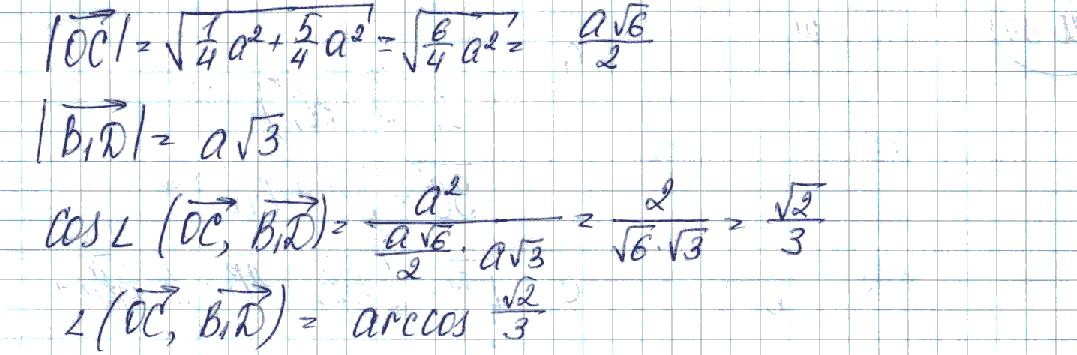 |OC⃗| = √(1/4 a² + 5/4 a²) = √(6/4 a²) = a√6/2
|B₁D⃗| = a√3
cos ∠ (OC⃗, B₁D⃗) = a²/(a√6/2 · a√3) = 2/(√6 · √3) = √2/3
∠ (OC⃗, B₁D⃗) = arccos √2/3